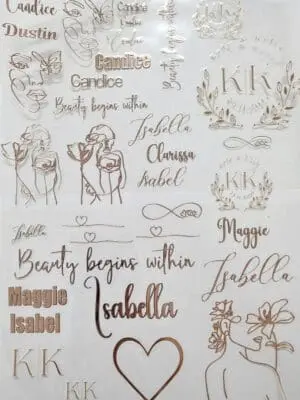 Candice
Dustin
Candice
Candice
Candice
Candice
Beauty begins within
Beauty begins within
KK
Isabella
Clarissa
Isabel
KK
Isabella
Maggie
Beauty begins within
Isabella
Maggie
Isabel
Isabella
KK
KK